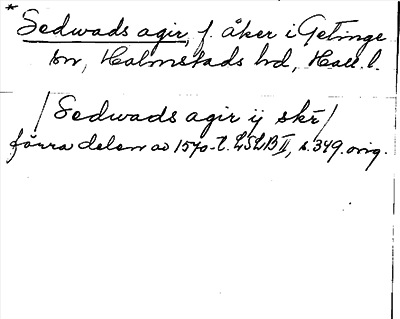 * Sedwads agir, f. åker i Getinge
sn, Halmstads hd, Hall. l.
/ Sedwads agir ij skr̄ /
förra delen av 1570-t. LSLB II, s. 349. orig.